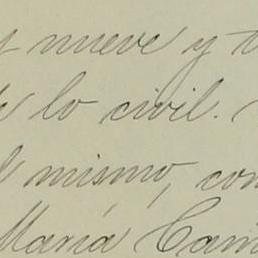 y nueve y t
de lo civil.
el mismo, con
María Cam